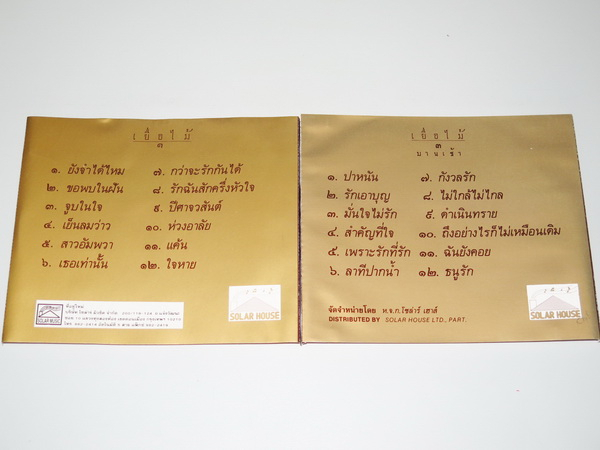 เยื่อไม้
๓
๑. ยังจำได้ไหม
๒. ขอพบในฝัน
๓. จูบในใจ
๔. เย็นลมว่าว
๕. สาวอัมพวา
๖. เธอเท่านั้น
๗. กว่าจะรักกันได้
๘. รักฉันสักครึ่งหัวใจ
๙. ปีศาจวสันต์
๑๐. ห่วงอาลัย
๑๑. แค้น
๑๒. ใจหาย
SOLAR HOUSE
SOLAR HOUSE
เยื่อไม้
๓
มานเช้า
๑. ปาหนัน
๒. รักเอาบุญ
๓. มั่นใจไม่รัก
๔. สำคัญที่ใจ
๕. เพราะรักที่รัก
๖. ลาทีปากน้ำ
๗. กังวลรัก
๘. ไม่ใกล้ไม่ไกล
๙. ดำเนินทราย
๑๐. ถึงอย่างไรก็ไม่เหมือนเดิม
๑๑. ฉันยังคอย
๑๒. ธนูรัก
จัดจำหน่ายโดย ห.จ.ก.โซล่าร์ เฮาส์
DISTRIBUTED BY SOLAR HOUSE LTD., PART.
SOLAR HOUSE